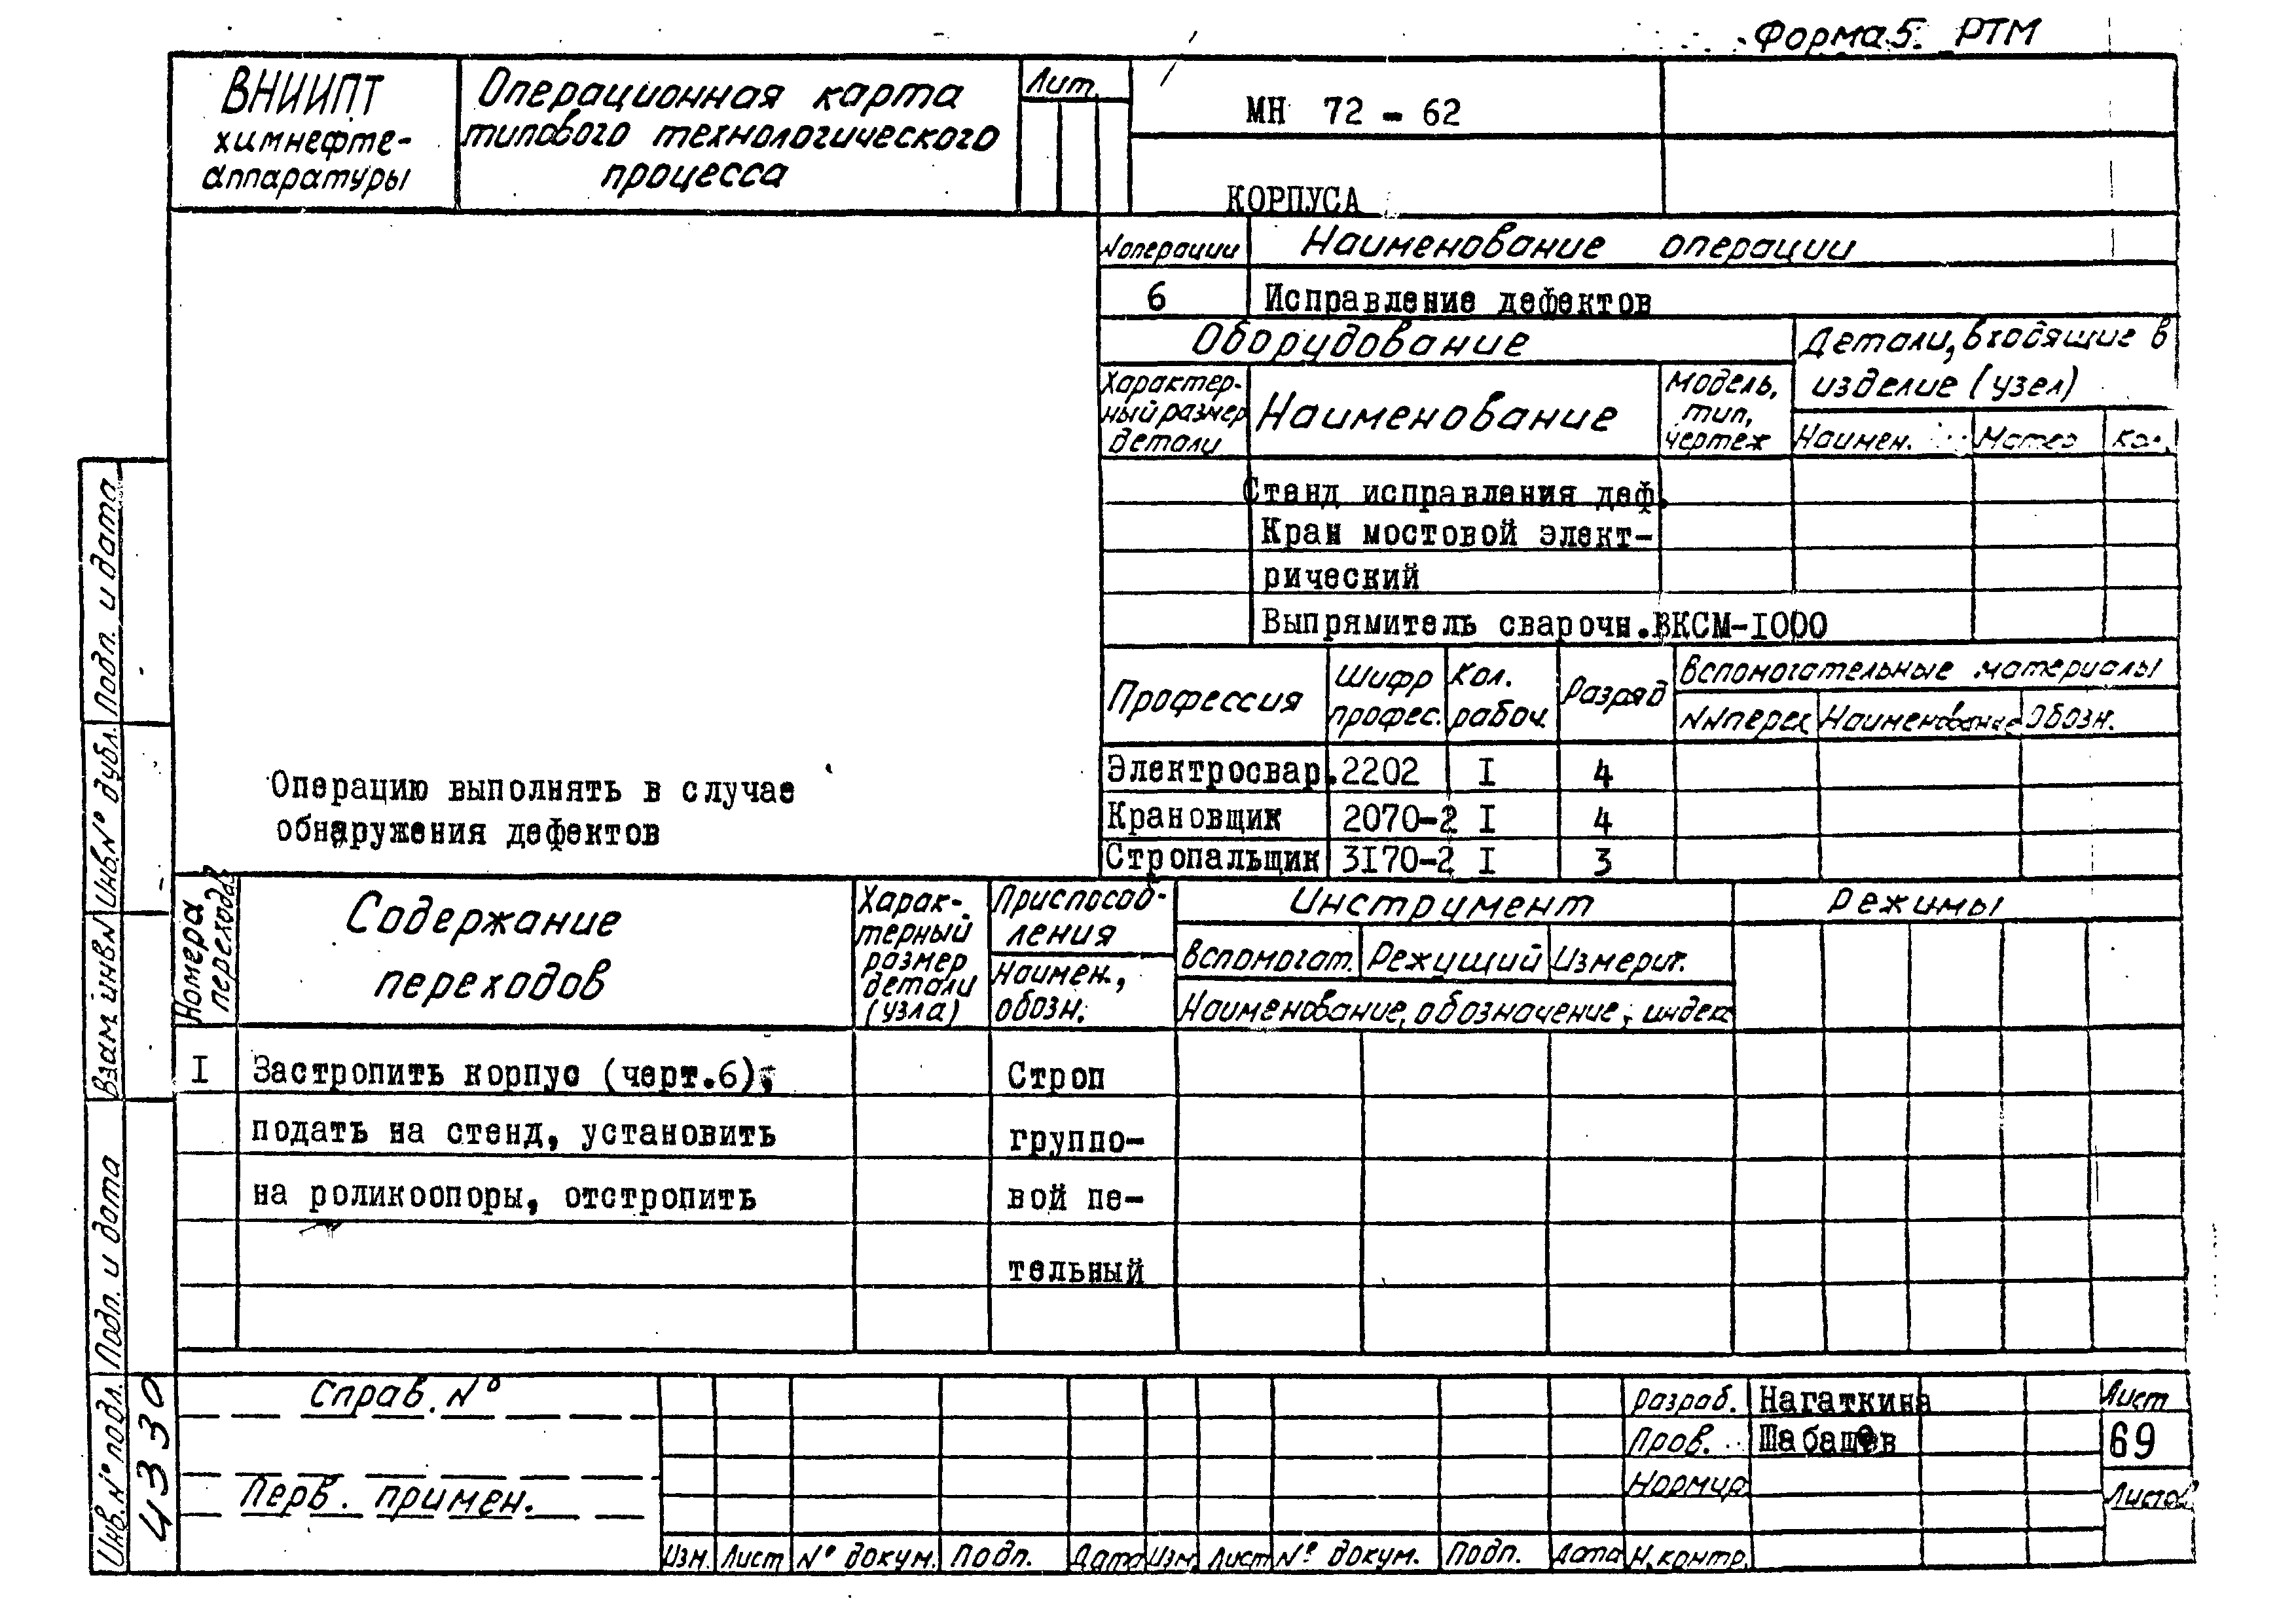 Форма 5. РТМ
ВНИИПТ
химнефте-
аппаратуры
Операционная карта
типового технологического
процесса
Лит.
МН 72 - 62
КОРПУСА
N операции
Наименование операции
6
Исправление дефектов
Оборудование
Детали, входящие в
изделие (узел)
Характер-
ный размер
детали
Наименование
Модель,
тип,
чертеж
Наимен.
Матер
Кол.
Стенд исправления деф.
Кран мостовой элект-
рический
Выпрямитель сварочн. ВКСМ-I000
Профессия
Шифр
профес.
Кол.
рабоч.
Разряд
Вспомогательные материалы
NN перех
Наименование
Обозн.
Электросвар. 2202 I 4
Крановщик 2070-2 I 4
Стропальщик 3I70-2 I 3
Операцию выполнять в случае
обнаружения дефектов
Номера
переходов
Содержание
переходов
Харак-
терный
размер
детали
(узла)
Приспособ-
ления
Наимен.,
обозн.
Инструмент
Вспомогат.
Режущий
Измерит.
Наименование, обозначение, индекс
Режимы
I
Застропить корпус (черт.6),
подать на стенд, установить
на роликоопоры, отстропить
Строп
группо-
вой пе-
тельный
Справ. N°
Перв. примен.
Изм. Лист N° докум. Подп. Дата Изм Лист N° докум. Подп. Дата
Разраб. Нагаткина
Пров. Шабашов
Нормир.
Н. контр.
Лист
69
Листов
Подп. и дата
Инв. N° дубл.
Взам инв N
Подп. и дата
Инв. N° подл.
4330